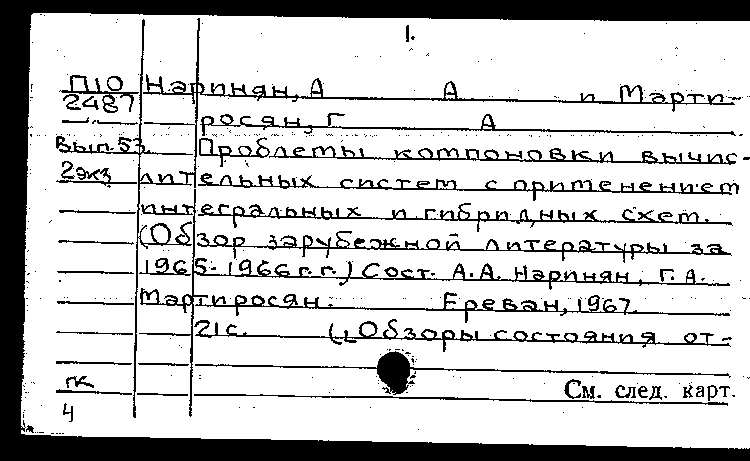 1.
П10 Нарпнян, А А и Марти-
2487
росян, Г А
Вып.53. Проблемы компоновки вычис-
2экз лительных систем с применением
интегральных и гибридных схем.
(Обзор зарубежной литературы за
1965-1966г.г.) Сост. А.А. Нарпнян, Г.А.
Мартиросян. Ереван, 1967.
21с. („Обзоры состояния от-
гк См. след. карт.
4